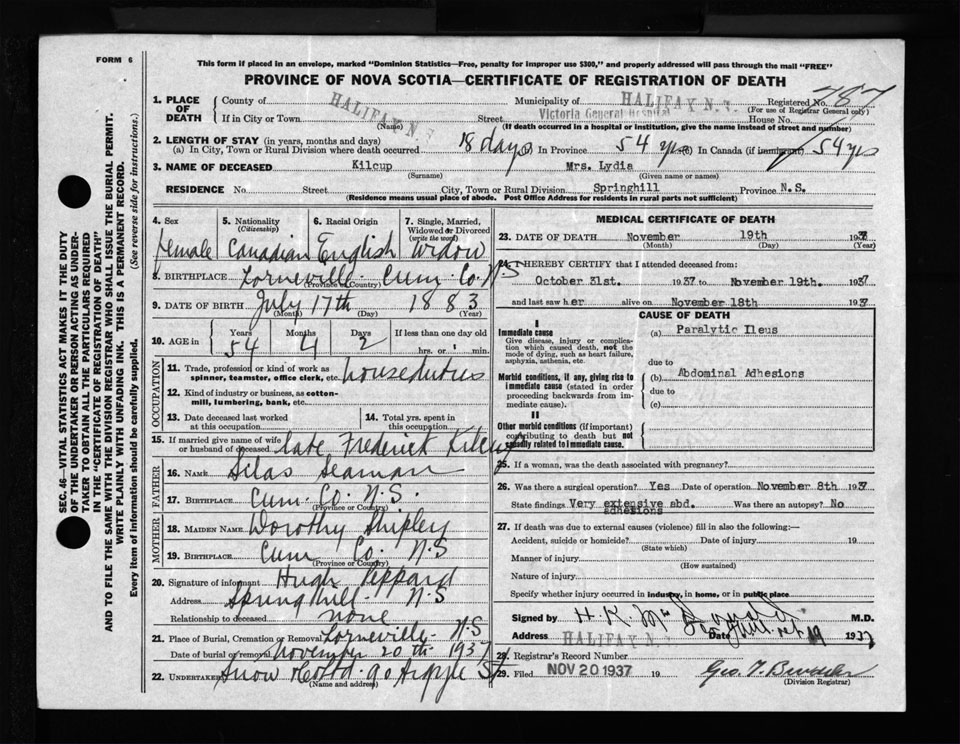 FORM 6
This form if placed in an envelope, marked "Dominion Statistics—Free, penalty for improper use $300," and properly addressed will pass through the mail "FREE"
PROVINCE OF NOVA SCOTIA—CERTIFICATE OF REGISTRATION OF DEATH
SEC. 46—VITAL STATISTICS ACT MAKES IT THE DUTY
OF THE UNDERTAKER OR PERSON ACTING AS UNDER-
TAKER TO OBTAIN ALL THE PARTICULARS REQUIRED
IN THE "CERTIFICATE OF REGISTRATION OF DEATH"
AND TO FILE THE SAME WITH THE DIVISION REGISTRAR WHO SHALL ISSUE THE BURIAL PERMIT.
WRITE PLAINLY WITH UNFADING INK. THIS IS A PERMANENT RECORD.
Every item of information should be carefully supplied. (See reverse side for instructions.)
1. PLACE OF DEATH
County of HALIFAX N S Municipality of HALIFAX N. S. Registered No. 787
(For use of Registrar General only)
If in City or Town Street Victoria General Hospital House No.
(Name) (If death occurred in a hospital or institution, give the name instead of street and number)
2. LENGTH OF STAY (in years, months and days)
(a) In City, Town or Rural Division where death occurred 18 days (b) In Province 54 yrs (c) In Canada (if immigrant) 54 yrs
3. NAME OF DECEASED Kilcup Mrs. Lydia
(Surname) (Given name or names)
RESIDENCE No. Street City, Town or Rural Division Springhill Province N.S.
(Residence means usual place of abode. Post Office Address for residents in rural parts not sufficient)
4. Sex 5. Nationality (Citizenship) 6. Racial Origin 7. Single, Married, Widowed or Divorced (write the word)
female Canadian English Widow
8. BIRTHPLACE Lorneville - Cum. Co. N S
(Province or Country)
9. DATE OF BIRTH July 17th 1883
(Month) (Day) (Year)
10. AGE in Years Months Days If less than one day old
54 4 2 hrs. or min.
OCCUPATION
11. Trade, profession or kind of work as
spinner, teamster, office clerk, etc. houseduties
12. Kind of industry or business, as cotton-
mill, lumbering, bank, etc.
13. Date deceased last worked
at this occupation
14. Total yrs. spent in
this occupation
15. If married give name of wife
or husband of deceased late Frederick Kilcup
FATHER
16. NAME Silas Seaman
17. BIRTHPLACE Cum. Co. N.S.
(Province or Country)
MOTHER
18. MAIDEN NAME Dorothy Shipley
19. BIRTHPLACE Cum Co. N.S
(Province or Country)
20. Signature of informant Hugh Peppard
Address Springhill - N.S
Relationship to deceased none
21. Place of Burial, Cremation or Removal Lorneville - N.S
Date of burial or removal November 20th 1937
22. UNDERTAKER Snow 90 Argyle St
(Name and address)
MEDICAL CERTIFICATE OF DEATH
23. DATE OF DEATH November 19th 1937
(Month) (Day) (Year)
24. I HEREBY CERTIFY that I attended deceased from:
October 31st. 1937 to November 19th. 1937
and last saw her alive on November 18th 1937
CAUSE OF DEATH
I
Immediate cause
Give disease, injury or complica-
tion which caused death, not the
mode of dying, such as heart failure,
asphyxia, asthenia, etc.
(a) Paralytic Ileus
due to
Morbid conditions, if any, giving rise to
immediate cause (stated in order
proceeding backwards from im-
mediate cause).
(b) Abdominal Adhesions
due to
(c)
II
Other morbid conditions (if important)
contributing to death but not
causally related to immediate cause.
25. If a woman, was the death associated with pregnancy?
26. Was there a surgical operation? Yes Date of operation November 8th 1937
State findings Very extensive abd. adhesions Was there an autopsy? No
27. If death was due to external causes (violence) fill in also the following:—
Accident, suicide or homicide? Date of injury 19
(State which)
Manner of injury
(How sustained)
Nature of injury
Specify whether injury occurred in industry, in home, or in public place
Signed by H. K. M.D.
Address HALIFAX N. S. Date 19 1937
28. Registrar's Record Number
29. Filed NOV 20 1937 19 Geo.
(Division Registrar)